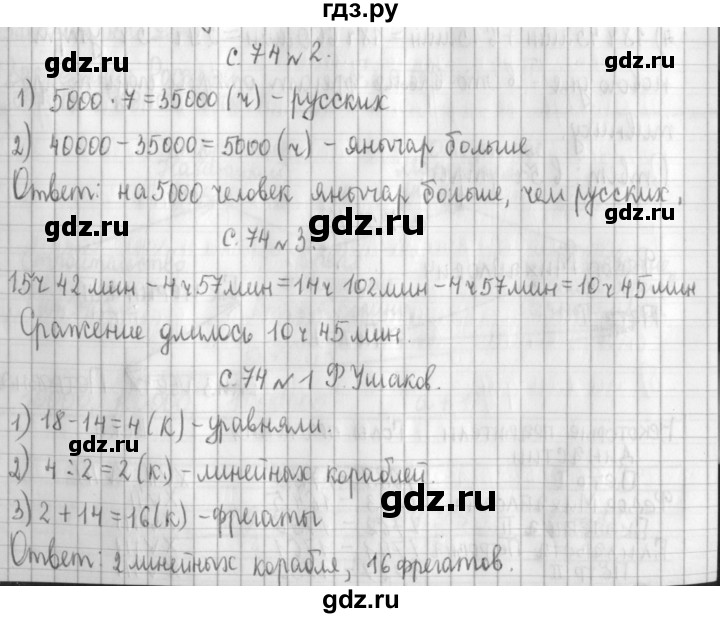 гдз.ру
с. 74 № 2.
gdz.ru gdz.ru gdz.ru
1) 5000 · 7 = 35000 (ч) - русских
2) 40000 - 35000 = 5000 (ч) - янычар больше
Ответ: на 5000 человек янычар больше, чем русских.
gdz.ru gdz.ru gdz.ru
с. 74 № 3.
15ч 42 мин - 4ч 57 мин = 14ч 102 мин - 4ч 57 мин = 10ч 45 мин
Сражение длилось 10ч 45 мин.
gdz.ru
с. 74 № 1 Ф. Ушаков.
1) 18 - 14 = 4 (к) - уравняли.
gdz.ru gdz.ru
2) 4 : 2 = 2 (к.) - линейных кораблей.
gdz.ru
3) 2 + 14 = 16 (к) - фрегаты
Ответ: 2 линейных корабля, 16 фрегатов.
gdz.ru gdz.ru
gdz.ru